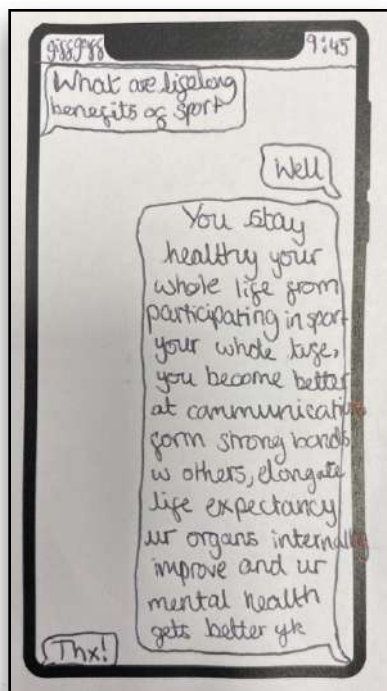 9:45
What are lifelong
benefits of sport
Well
You stay
healthy your
whole life from
participating in sport
your whole life,
you become better
at communicating
form strong bonds
w others, elongate
life expectancy
ur organs internally
improve and ur
mental health
gets better yk
Thx!